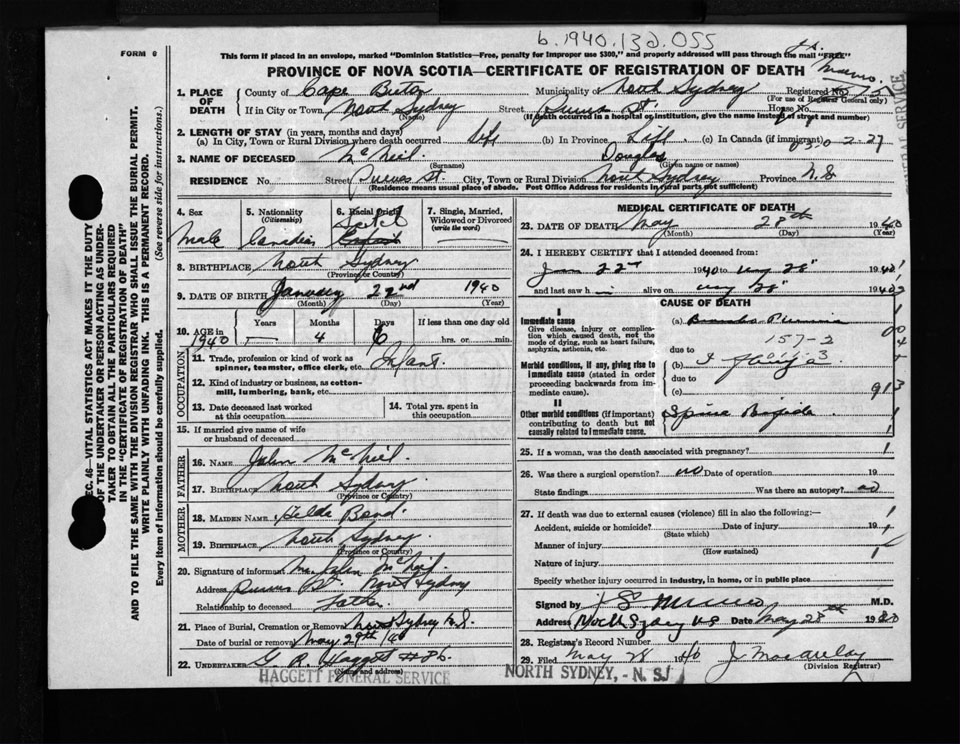 b.1940.132.055
FORM 6
This form if placed in an envelope, marked "Dominion Statistics—Free, penalty for improper use $300," and properly addressed will pass through the mail "FREE"
PROVINCE OF NOVA SCOTIA—CERTIFICATE OF REGISTRATION OF DEATH
1. PLACE OF DEATH
County of Cape Breton Municipality of North Sydney Registered No.
(For use of Registrar General only)
If in City or Town North Sydney Street Purves St. House No.
(Name) (If death occurred in a hospital or institution, give the name instead of street and number)
2. LENGTH OF STAY (in years, months and days)
(a) In City, Town or Rural Division where death occurred Life (b) In Province Life (c) In Canada (if immigrant)
3. NAME OF DECEASED McNeil Douglas
(Surname) (Given name or names)
RESIDENCE No. Street Purves St. City, Town or Rural Division North Sydney Province N.S
(Residence means usual place of abode. Post Office Address for residents in rural parts not sufficient)
4. Sex Male
5. Nationality (Citizenship) Canadian
6. Racial Origin Scotch
7. Single, Married, Widowed or Divorced (write the word)
8. BIRTHPLACE North Sydney
(Province or Country)
9. DATE OF BIRTH January 22nd 1940
(Month) (Day) (Year)
10. AGE in 1940
Years Months 4 Days 6 If less than one day old
hrs. or min.
OCCUPATION
11. Trade, profession or kind of work as spinner, teamster, office clerk, etc. Infant
12. Kind of industry or business, as cotton-mill, lumbering, bank, etc.
13. Date deceased last worked at this occupation
14. Total yrs. spent in this occupation
15. If married give name of wife or husband of deceased
FATHER
16. NAME John McNeil
17. BIRTHPLACE North Sydney
(Province or Country)
MOTHER
18. MAIDEN NAME Hilda Bond
19. BIRTHPLACE North Sydney
(Province or Country)
20. Signature of informant Mr John McNeil
Address Purves St. North Sydney
Relationship to deceased Father
21. Place of Burial, Cremation or Removal North Sydney N.S.
Date of burial or removal May 29th/40
22. UNDERTAKER G. R. Haggett #86
(Name and address)
HAGGETT FUNERAL SERVICE
NORTH SYDNEY, - N. S.
MEDICAL CERTIFICATE OF DEATH
23. DATE OF DEATH May 28th 1940
(Month) (Day) (Year)
24. I HEREBY CERTIFY that I attended deceased from:
Jan 22nd 1940 to May 28" 1940
and last saw h im alive on May 28" 1940
CAUSE OF DEATH
I
Immediate cause
Give disease, injury or complication which caused death, not the mode of dying, such as heart failure, asphyxia, asthenia, etc.
(a) Broncho Pneumonia
157-2
due to
Morbid conditions, if any, giving rise to immediate cause (stated in order proceeding backwards from immediate cause)
(b)
due to
(c)
II
Other morbid conditions (if important) contributing to death but not causally related to immediate cause.
Spina Bifida
25. If a woman, was the death associated with pregnancy?
26. Was there a surgical operation? no Date of operation 19
State findings Was there an autopsy? no
27. If death was due to external causes (violence) fill in also the following:—
Accident, suicide or homicide? Date of injury 19
(State which)
Manner of injury
(How sustained)
Nature of injury
Specify whether injury occurred in industry, in home, or in public place
Signed by J S Munro M.D.
Address North Sydney NS Date May 28th 1940
28. Registrar's Record Number
29. Filed May 28 1940 J. MacAulay
(Division Registrar)
SEC. 46—VITAL STATISTICS ACT MAKES IT THE DUTY
OF THE UNDERTAKER OR PERSON ACTING AS UNDERTAKER TO OBTAIN ALL THE PARTICULARS REQUIRED
IN THE "CERTIFICATE OF REGISTRATION OF DEATH"
AND TO FILE THE SAME WITH THE DIVISION REGISTRAR WHO SHALL ISSUE THE BURIAL PERMIT.
WRITE PLAINLY WITH UNFADING INK. THIS IS A PERMANENT RECORD.
Every item of information should be carefully supplied. (See reverse side for instructions.)